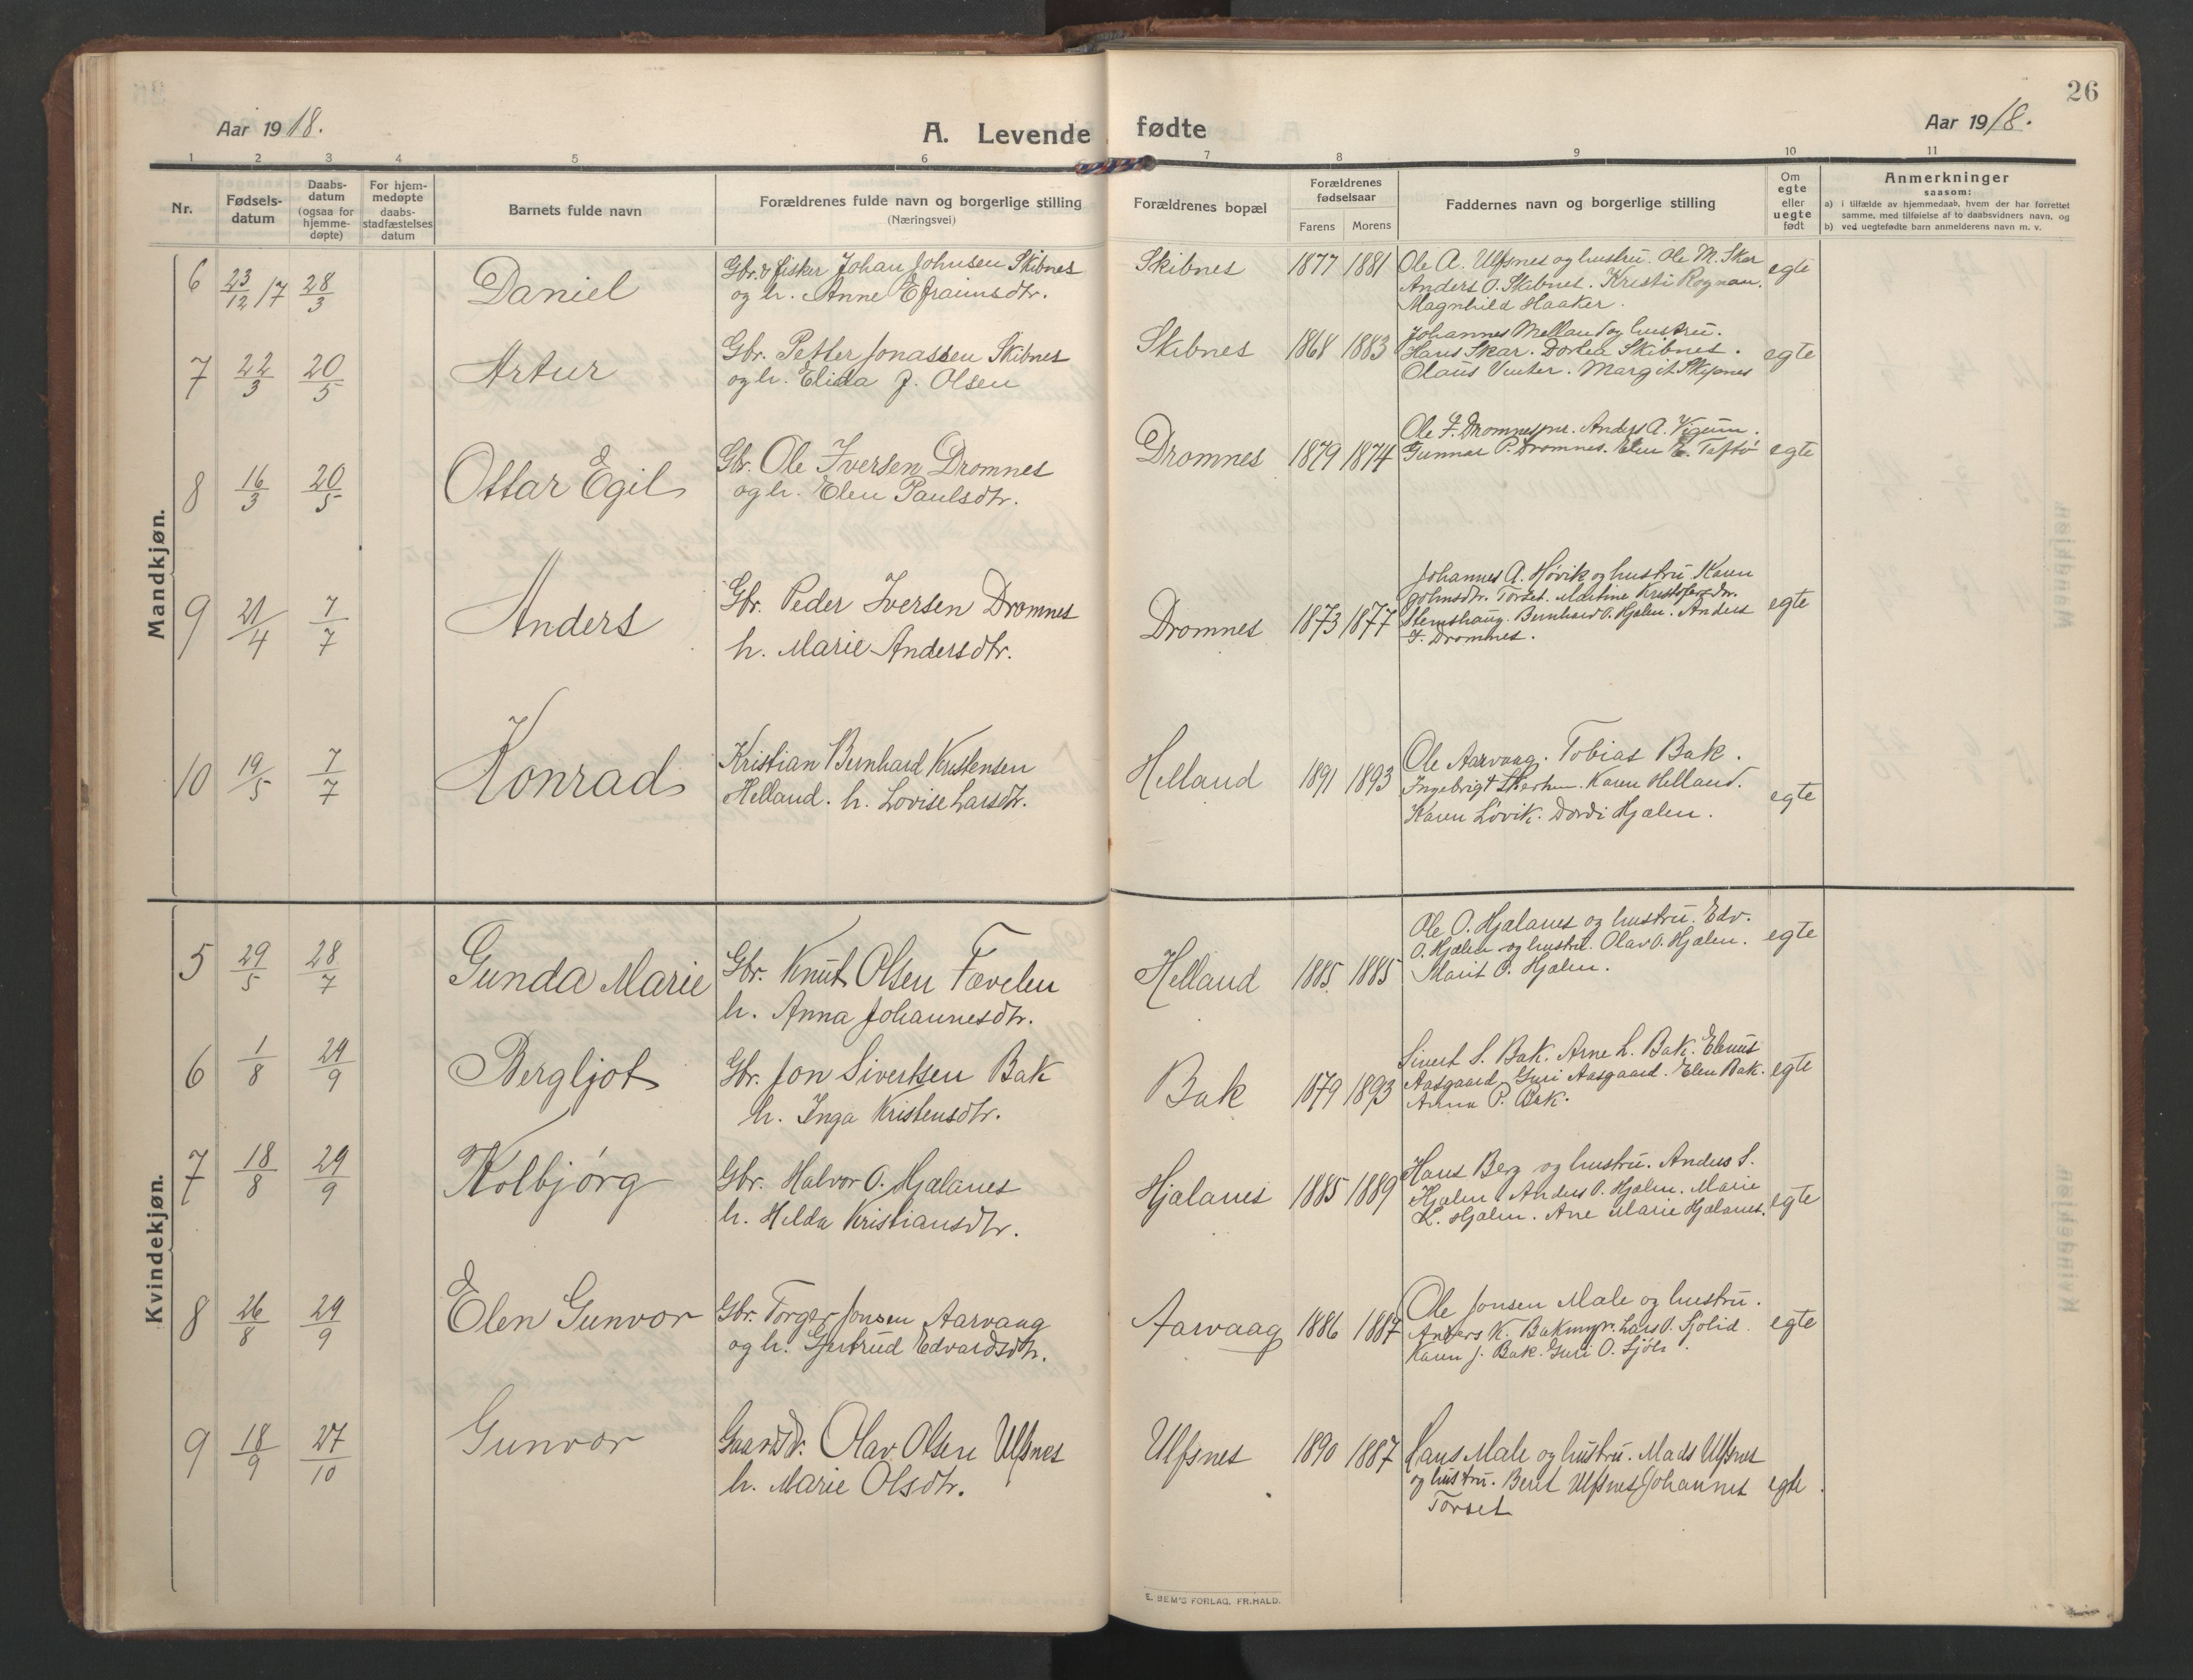 26
Aar 1918.
A. Levende fødte
Aar 1918.
1 2 3 4 5 6 7 8 9 10 11
Nr.
Fødsels-
datum
Daabs-
datum
(ogsaa for
hjemme-
døpte)
For hjem-
medøpte
daabs-
stadfæstelses
datum
Barnets fulde navn
Forældrenes fulde navn og borgerlige stilling
(Næringsvei)
Forældrenes bopæl
Forældrenes
fødselsaar
Farens Morens
Faddernes navn og borgerlige stilling
Om
egte
eller
uegte
født
Anmerkninger
saasom:
a) i tilfælde av hjemmedaab, hvem der har forrettet
samme, med tilføielse af to daabsvidners navn, og
b) ved uegtefødte barn anmelderens navn m. v.
Mandkjøn.
6 23/12 17 28/3 Daniel
Gbr. & fisker Johan Johnsen Skibnes
og h. Anne Efraimsdtr.
Skibnes 1877 1881
Ole A. Ulfsnes og hustru. Ole M. Skar
Anders O. Skibnes. Kristi Rognan.
Magnhild Haaker.
egte
7 22/3 20/5 Artur
Gbr. Petter Jonassen Skibnes
og h. Elida J. Olsen
Skibnes 1868 1883
Johannes Melland og hustru.
Hans Skar. Dortea Skibnes.
Olaus Vinter. Margit Skibnes
egte
8 16/3 20/5 Ottar Egil
Gbr. Ole Iversen Dromnes
og h. Elen Paulsdtr.
Dromnes 1879 1874
Ole I. Dromnes Anders A.
Gunnar P. Dromnes. Elen E. Taftö
egte
9 21/4 7/7 Anders
Gbr. Peder Iversen Dromnes
h. Marie Andersdtr.
Dromnes 1873 1877
Johannes A. Hövik og hustru Karen
Johnsdtr. Torset. Martine Kristofersdtr.
Stemshaug. Bernhard O. Hjælen. Anders
I. Dromnes.
egte
10 19/5 7/7 Konrad
Kristian Bernhard Kristensen
Helland. h. Lovise Larsdtr.
Helland 1891 1893
Ole Aarvaag. Tobias Bak.
Ingebrigt Karen Helland.
Karen Lövik. Dordi Hjælen.
egte
Kvindekjøn.
5 29/5 28/7 Gunda Marie
Gbr. Knut Olsen Fævelen
h. Anna Johannesdtr.
Helland 1885 1885
Ole O. Hjælanes og hustru. Edv.
O. Hjælen og hustru. Olav O. Hjælen.
Marit O. Hjælen.
egte
6 1/8 29/9 Bergljot
Gbr. Jon Sivertsen Bak
h. Inga Kristensdtr.
Bak 1879 1893
Sivert S. Bak. Arne L. Bak.
Aasgaard Guri Aasgaard. Elen Bak.
Anna P. Bak.
egte
7 18/8 29/9 Kolbjörg
Gbr. Halvor O. Hjælanes
h. Hilda Kristiansdtr.
Hjælanes 1885 1889
Hans Berg og hustru. Anders S.
Hjælen. Anders O. Hjælen. Marie
K. Hjælen. Ane Marie Hjælanes.
egte
8 26/8 29/9 Elen Gunvor
Gbr. Torger Jonsen Aarvaag
og h. Gjertrud Edvardsdtr.
Aarvaag 1886 1887
Ole Jonsen Male og hustru.
Anders K. Bakmyr. Lars O. Sjölid.
Karen J. Bak. Guri O. Sjöli.
egte
9 18/9 27/10 Gunvor
Gaardbr. Olav Olsen Ulfsnes
h. Marie Olsdtr.
Ulfsnes 1890 1887
Hans Male og hustru. Mads Ulfsnes
og hustru. Beret Ulfsnes Johannes
Torset
egte.
E. SEM'S FORLAG, FR.HALD.